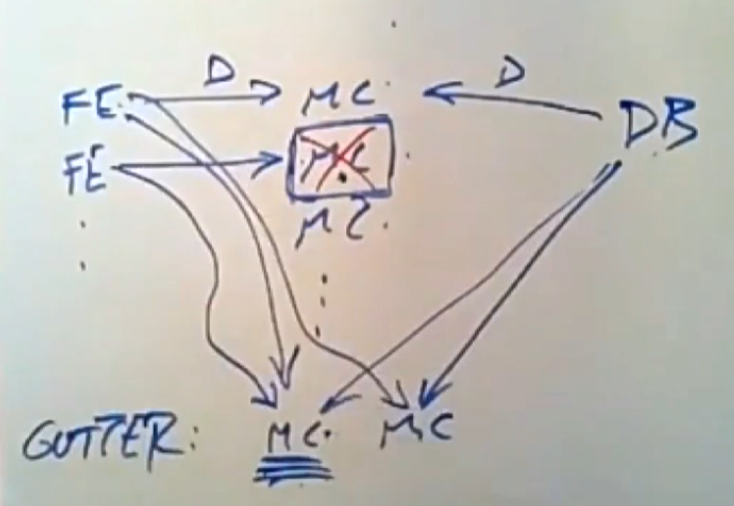 FE D MC D DB
FE MC
MC
GUTTER: MC MC